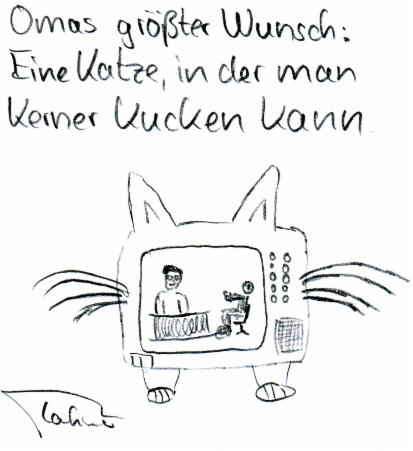 Omas größter Wunsch:
Eine Katze, in der man
Kerner kucken kann